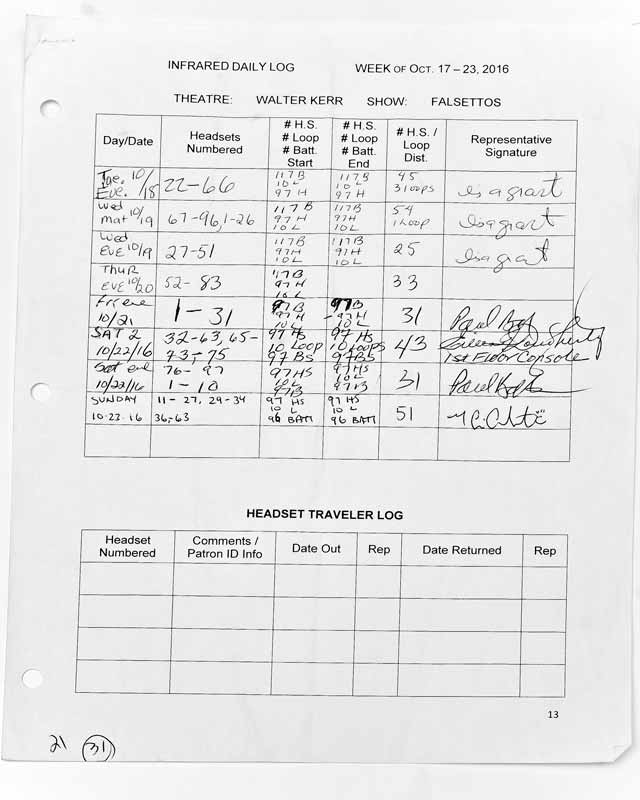 INFRARED DAILY LOG WEEK OF OCT. 17 – 23, 2016
THEATRE: WALTER KERR SHOW: FALSETTOS
Day/Date Headsets Numbered # H.S. # Loop # Batt. Start # H.S. # Loop # Batt. End # H.S. / Loop Dist. Representative Signature
Tue. 10/18 Eve. 22-66 117B 10L 97H 117B 10L 97H 45 3 loops Isa grant
Wed mat 10/19 67-96,1-26 117B 97H 10L 117B 97H 10L 54 1 Loop Isa grant
Wed EVE 10/19 27-51 117B 97H 10L 117B 97H 10L 25 Isa grant
THUR EVE 10/20 52-83 117B 97H 10L 33
Fri eve 10/21 1-31 97B 97H 10L 97B 97H 10L 31 Paul
SAT 2 10/22/16 32-63, 65- 73-75 97 HS 10 Loop 97 BS 97 HS 10 LOOPS 97 BS 43 1st Floor Console
Sat eve 10/22/16 76-97 1-10 97HS 10L 97B 97HS 10L 97B 31 Paul
SUNDAY 10-23-16 11-27, 29-34 36-63 97 HS 10 L 96 BATT 97 HS 10 L 96 BATT 51
HEADSET TRAVELER LOG
Headset Numbered Comments / Patron ID Info Date Out Rep Date Returned Rep
13
21 31